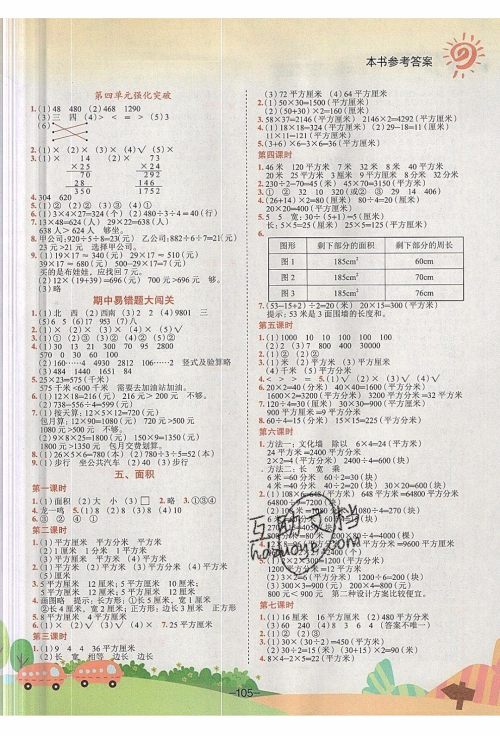 本书参考答案
第四单元强化突破
1.(1)48 480 (2)468 1290
(3)三 四 (4)> < = > (5)3
(6)
2.(1)× (2)× (3)× (4)√ (5)×
3.(1)× 14 (2)× 73
×25 ×24
70 292
28 146
350 1752
4.304 620
5.(1)② (2)② (3)③ (4)①
6.(1)3×4×27=324(个) (2)480÷3÷4=40(行)
7.13×48=624(人) 29×22=638(人)
638人>624人 够坐。
8.甲公司:920÷5÷8=23(元) 乙公司:882÷6÷7=21(元)
23元>21元 选择甲公司。
9.(1)19×17≈340(元) 29×17≈510(元)
39×17≈680(元) 500-29×17=7(元)
买的是布娃娃,应找回7元。
(2)12×(19+39)=696(元) 700元>696元 够。
(3)略
期中易错题大闯关
1.(1)北 西 (2)西南 (3)2 2 (4)9801 三
(5)6 5 (6)17 953 (7)八
2.(1)× (2)× (3)× (4)× (5)√
3.(1)① (2)③ (3)② (4)② (5)②
4.(1)30 13 21 300 70 95 2800
570 0 30 60 100
(2)160……4 4930 2812 106……2 竖式及验算略
(3)484 1440 1651 84
5.25×23=575(千米)
575千米<600千米 需要去加油站加油。
6.(1)12×18=216(元) 216元>200元 不够。
(2)738-556÷4=599(元)
7.(1)按天算:12×5×12=720(元)
包月算:12×90=1080(元) 720元>500元
1080元>500元 不够。
(2)9×8×25=1800(元) 150×9=1350(元)
1800元>1350元 包月交费划算。
8.(1)26×5×6=780(本) (2)780÷3÷5=52(本)
9.(1)步行 坐公共汽车 (2)40 (3)步行
五、面积
第一课时
1.(1)面积 (2)大 小 (3)□ 2.略 3.①③④
4.龙一鸣 5.(1)8 (2)8 (3)8 (4)10
6.③ ② ④ ①
第二课时
1.(1)平方厘米 平方分米 平方米
(2)1厘米 1分米 1平方米
(3)平方厘米 平方米 (4)平方米
2.(1)平方米 (2)平方米 (3)平方分米 (4)平方厘米
(5)厘米
3.5平方厘米 12厘米;5平方厘米 10厘米;
5平方厘米 12厘米;5平方厘米 12厘米
4.画图略 提示:长方形:①长5厘米,宽1厘米
②长4厘米,宽2厘米;正方形:边长3厘米 正方形
5.8平方厘米 4平方厘米
6.(1)× (2)√ (3)√ (4)× 7.25平方厘米
第三课时
1.(1)9 4 4 36平方厘米
(2)长 宽 相等 边长 边长
(3)72平方厘米 (4)64平方厘米
2.(1)50×30=1500(平方厘米)
(2)(50+30)×2=160(厘米)
3.58×37=2146(平方厘米) 2146×2=4292(平方厘米)
4.(1)18×18=324(平方厘米) (2)29-18=11(厘米)
11×11=121(平方厘米)
5.(3+6)×6-3×6=36(平方厘米)
第四课时
1.46米 120平方米 7米 32米 8米 40平方米
20米 25平方米 3厘米 9平方厘米 8分米 32分米
2.230÷2-70=45(米) 45×70=3150(平方米)
3.① ② 32 10 320(或② ③ 29 14 406)
4.(26+14)×2=80(厘米) 80÷4=20(厘米)
20×20=400(平方厘米)
5.5 5 宽:30÷(5+1)=5(厘米)
长:5×5=25(厘米) 25×5=125(平方厘米)
6.
图形 剩下部分的面积 剩下部分的周长
图1 185cm² 60cm
图2 185cm² 70cm
图3 185cm² 76cm
7.(53-15+2)÷2=20(米) 20×15=300(平方米)
提示:53米是3面围墙的长度和。
第五课时
1.(1)1000 10 10 100 100 100
(2)2 (3)7 800 400 30000
2.(1)② (2)②
3.(1)米 (2)平方米 (3)平方厘米
(4)千米 (5)平方分米
4.< > > = 5.(1)√ (2)× (3)√ (4)√
6.20×2=40(分米) 40×40=1600(平方分米)
1600×2=3200(平方分米) 3200平方分米=32平方米
7.120÷4=30(厘米) 30×30=900(平方厘米)
900平方厘米=9平方分米
8.60÷4=15(分米) 15×15=225(平方分米)
第六课时
1.方法一:文化墙 除以 6×4=24(平方米)
24平方米=2400平方分米
2×2=4(平方分米) 2400÷4=600(块)
方法二:长 宽 乘
6米=60分米 60÷2=30(块)
4米=40分米 40÷2=20(块) 30×20=600(块)
2.(1)108×6=648(平方米) 648平方米=64800平方分米
3.(1)2×3=6(平方分米) 1200÷6=200(块)
(3)300×3=900(元) 200×4=800(元)
800元<900元 第二种设计方案比较便宜。
第七课时
1.(1)16厘米 16平方厘米 (2)480平方分米
(3)60 240 (4)8 3 6 4 (答案不唯一)
2.(1)① (2)③
3.(1)30×(30÷2)=450(平方米)
(2)30÷2=15(米) (30+15)×2=90(米)
4.8×4-2×5=22(平方米)
-105-